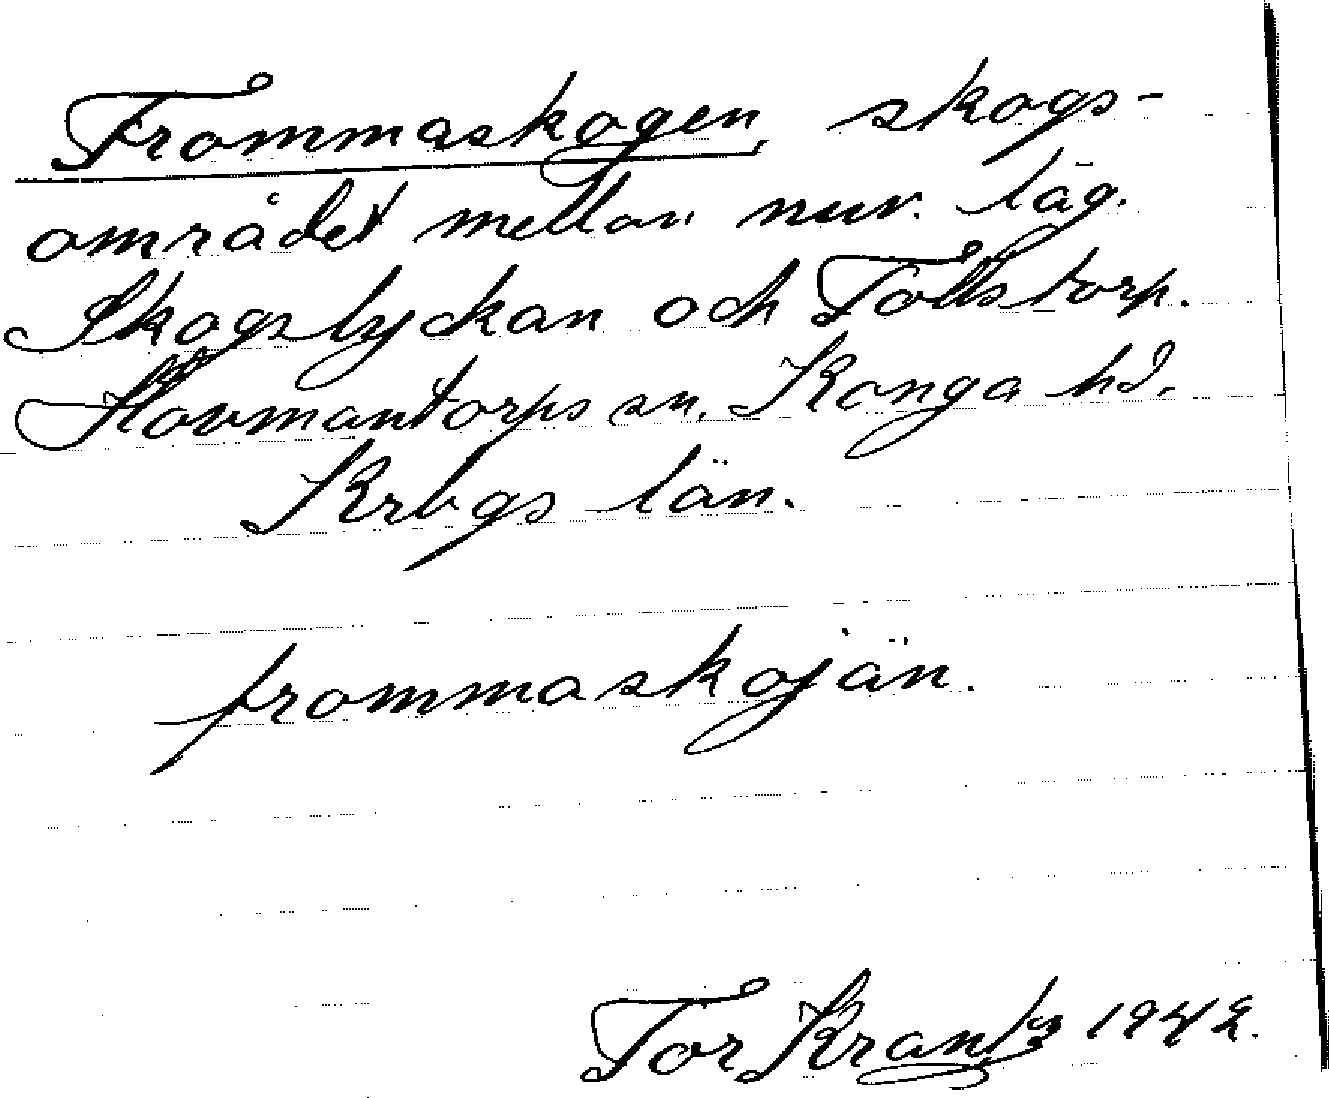 Frommaskogen, skogs-
området mellan nuv. läg.
Skogslyckan och Tollstorp.
Hovmantorps sn. Konga hd.
Krbgs län.
frommaskojän.
Tor Krantz 1942.